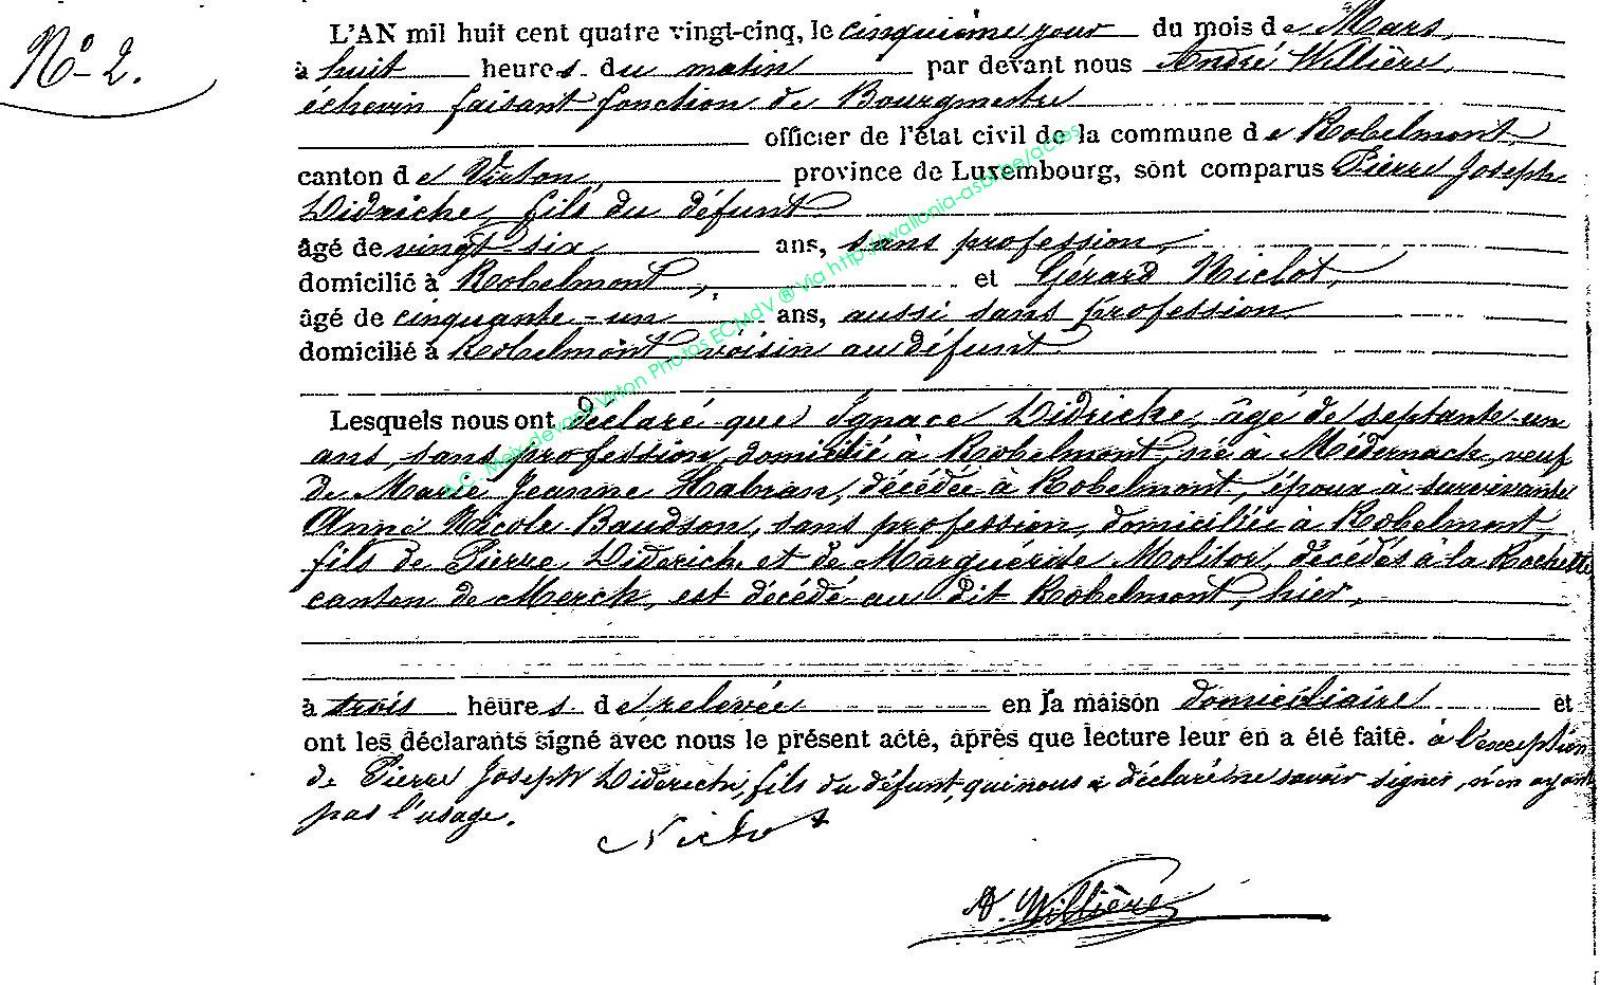 N° 2.
L'AN mil huit cent quatre vingt-cinq, le cinquième jour du mois de Mars,
à huit heures du matin par devant nous André Willière,
échevin faisant fonction de Bourgmestre
officier de l'état civil de la commune de Robelmont,
canton de Virton, province de Luxembourg, sont comparus Pierre Joseph
Didriche, fils du défunt
âgé de vingt six ans, sans profession,
domicilié à Robelmont, et Gérard Niclot,
âgé de cinquante-un ans, aussi sans profession
domicilié à Robelmont voisin au défunt
Lesquels nous ont déclaré que Ignace Didriche, âgé de septante-un
ans, sans profession, domicilié à Robelmont, né à Médernack, veuf
de Marie Jeanne Habran, décédée à Robelmont, époux à survivante
Anne Nicole Baudson, sans profession, domiciliée à Robelmont,
fils de Pierre Diderich et de Marguérite Molitor, décédés à la Rochette
canton de Merch, est décédé au dit Robelmont, hier,
à trois heures de relevée en la maison domiciliaire et
ont les déclarants signé avec nous le présent acte, après que lecture leur en a été faite. à l'exception
de Pierre Joseph Diderich, fils du défunt, qui nous a déclaré ne savoir signer, n'en ayant
pas l'usage.
Niclot
A. Willière
A.C. Meix-devant-Virton Photos EC/MdV ® Via http://wallonia-asbl.be/actes